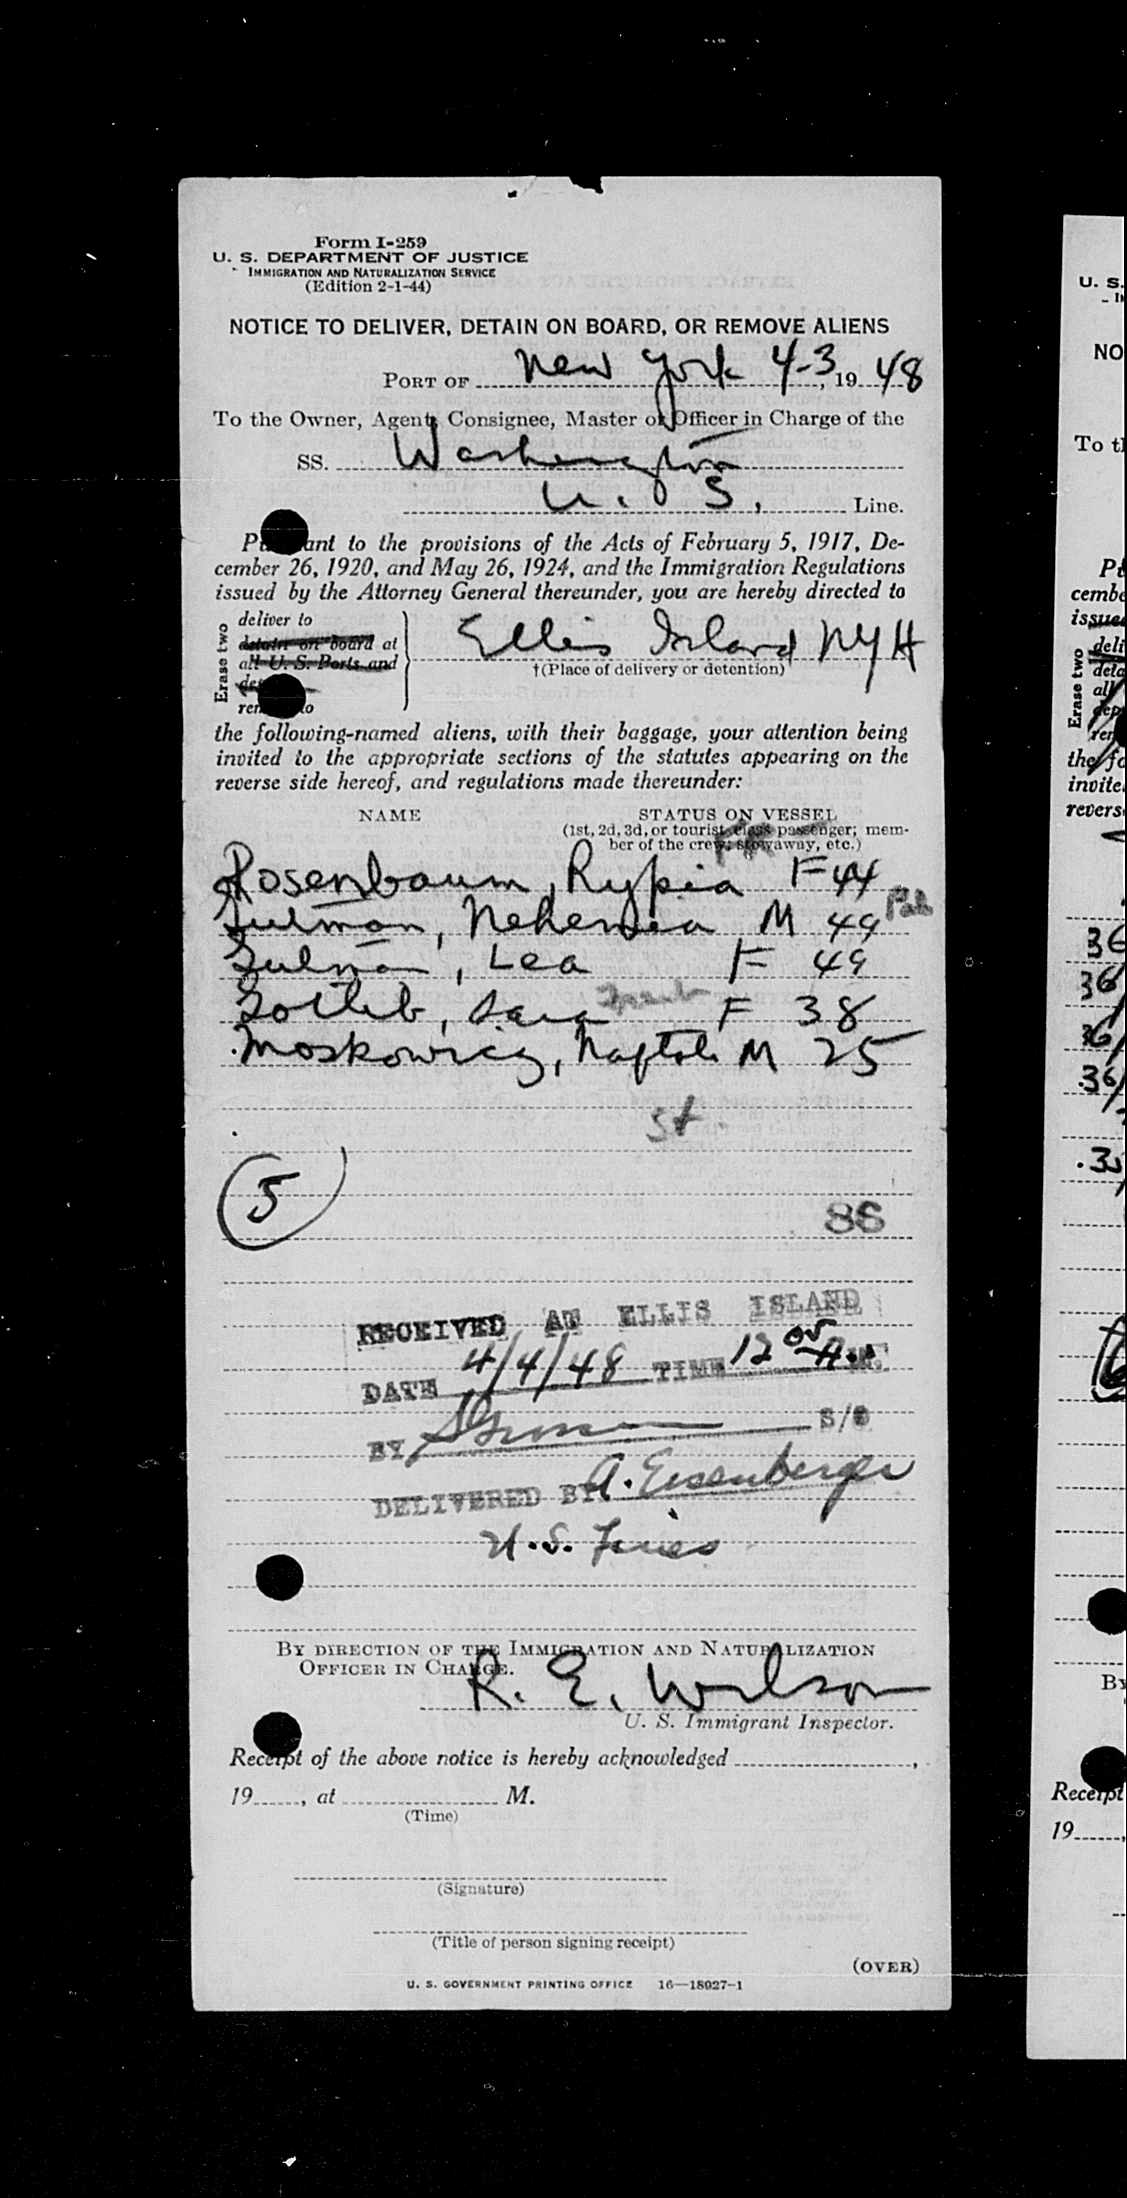 Form I-259
U. S. DEPARTMENT OF JUSTICE
IMMIGRATION AND NATURALIZATION SERVICE
(Edition 2-1-44)
NOTICE TO DELIVER, DETAIN ON BOARD, OR REMOVE ALIENS
PORT OF New York 4-3, 1948
To the Owner, Agent, Consignee, Master or Officer in Charge of the
SS. Washington
U. S. Line.
Pursuant to the provisions of the Acts of February 5, 1917, De-
cember 26, 1920, and May 26, 1924, and the Immigration Regulations
issued by the Attorney General thereunder, you are hereby directed to
Erase two
deliver to
detain on board at
all U. S. Ports and
Ellis Island NYH
†(Place of delivery or detention)
the following-named aliens, with their baggage, your attention being
invited to the appropriate sections of the statutes appearing on the
reverse side hereof, and regulations made thereunder:
NAME STATUS ON VESSEL
(1st, 2d, 3d, or tourist class passenger; mem-
ber of the crew; stowaway, etc.)
Rosenbaum, Rypia F 44
Nehemia M 49
Lea F 49
Gottlieb, Sara F 38
Moskowicz, Naftoli M 25
St
5
86
RECEIVED AT ELLIS ISLAND
DATE 4/4/48 TIME 12 05 A.M.
BY S/O
DELIVERED BY A. Eisenberger
U.S. Lines
BY DIRECTION OF THE IMMIGRATION AND NATURALIZATION
OFFICER IN CHARGE.
R. E. Wilson
U. S. Immigrant Inspector.
Receipt of the above notice is hereby acknowledged ,
19 , at M.
(Time)
(Signature)
(Title of person signing receipt)
(OVER)
U. S. GOVERNMENT PRINTING OFFICE 16—18027-1
U. S.
NO
To th
Erase two
the fo
invite
revers
36
36
36
36
By
Receipt
19